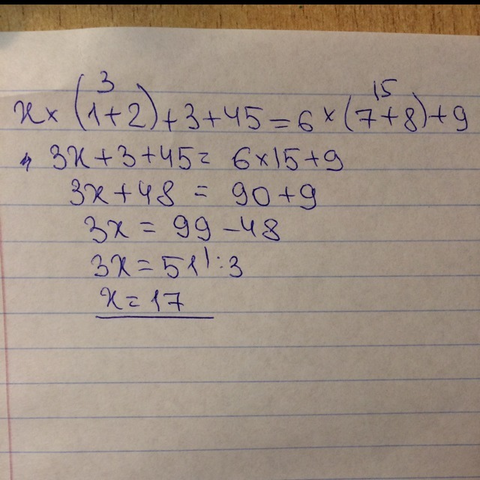 3 15
x × (1+2) + 3 + 45 = 6 × (7+8) + 9
3x + 3 + 45 = 6 × 15 + 9
3x + 48 = 90 + 9
3x = 99 - 48
3x = 51 |:3
x = 17